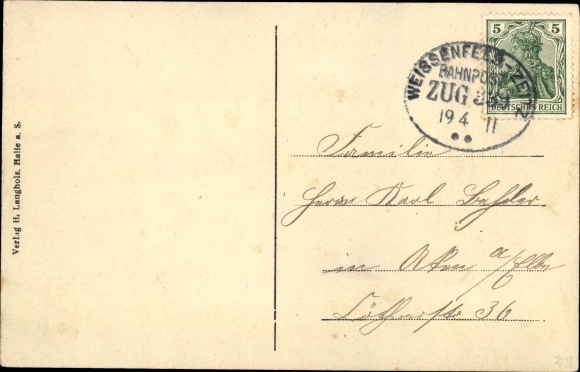 5 5
DEUTSCHES REICH
WEISSENFELS-ZEITZ
BAHNPOST
ZUG
19 4 11
Familie
Herrn Karl
in Aken a/Elbe
Cöthenerstr 36
Verlag H. Langholz, Halle a. S.